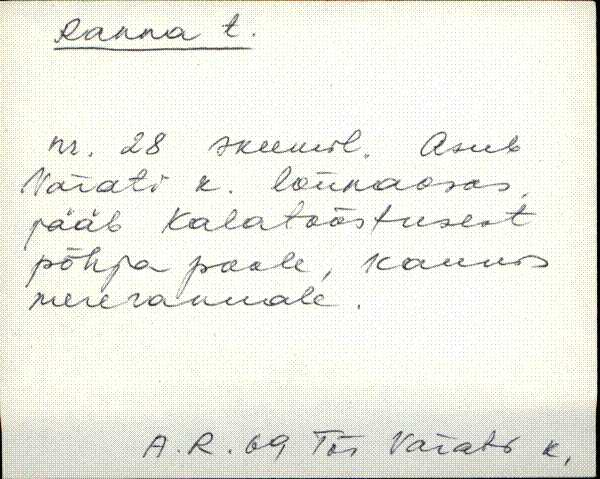 Ranna t.
nr. 28 skeemil. Asub
Värati k. lõunaosas,
jääb Kalatööstusest
põhja poole, kaunis
mererannale.
A.R. 69 Tös Värati k.